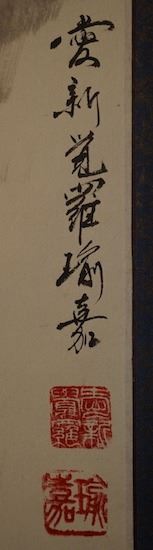 愛新覚羅瑜嘉
愛新
覺羅
瑜
嘉